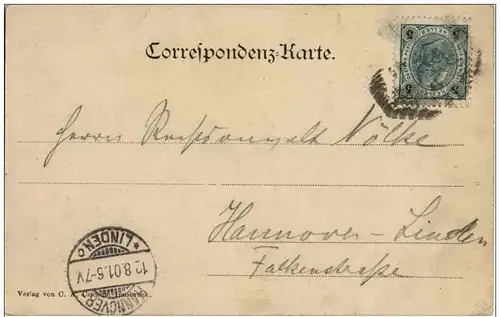 Correspondenz-Karte.
Herrn Rechtsanwalt Nölke
Hannover-Linden
Falkenstraße
* LINDEN
12.8.01.6-7V
HANNOVER
Verlag von C. A.
5 5